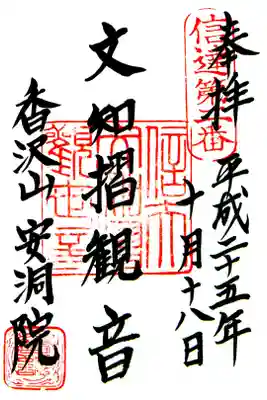 奉拝
平成二十五年
十月十八日
文知摺観音
香沢山 安洞院